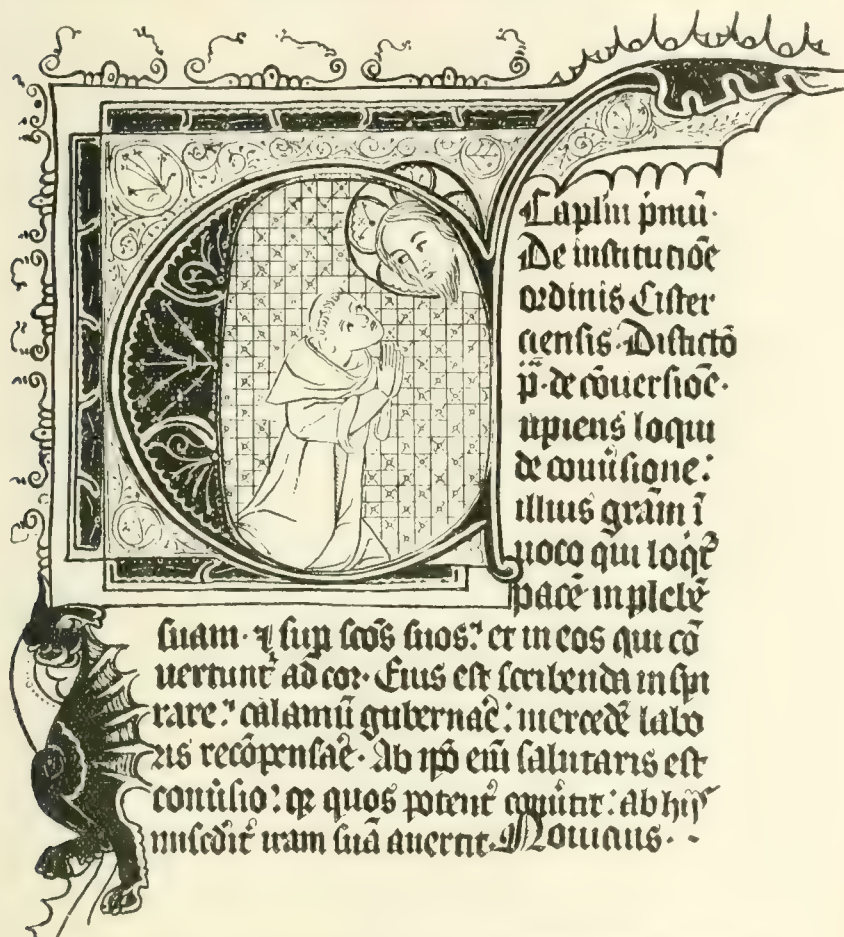 Caplm pͥmū·
De institutiōe
ordinis Cister
ciensis· Distictō
p̄· de cōuersiōe·
upiens loqui
de conu̓sione:
illius grām ī
uoco qui loq̄t̓
pacē in plebē
suam· ⁊ suꝑ scōs suos: et in eos qui cō
uertunt̓ ad cor· Eius est scribenda inspi
rare: calamū gubernar̄: mercedē labo
ris recōpensar̄· Ab ip̄o eīm salutaris est
conu̓sio: qꝛ quos potent̓ conu̓tit: ab hijs
mis̄cdit̓ iram suā auertit· Nouicius· -